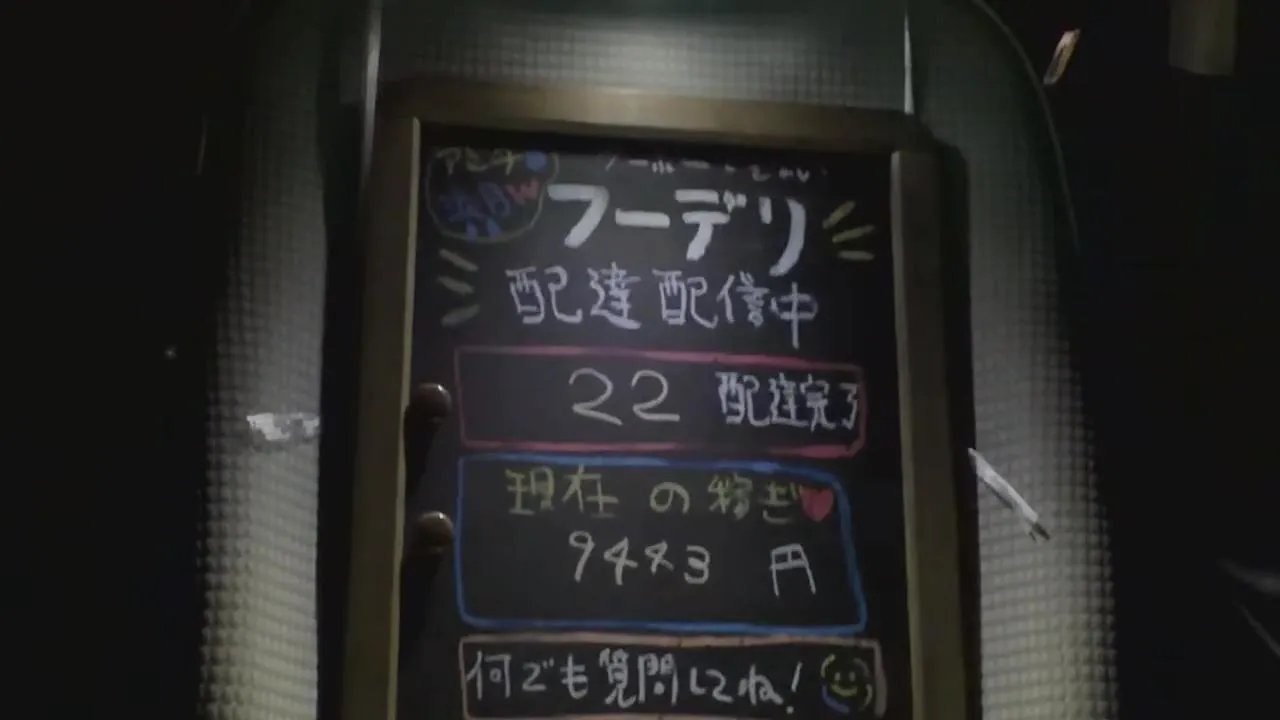 フーデリ
配達配信中
22 配達完了
現在の稼ぎ
9443 円
何でも質問してね!